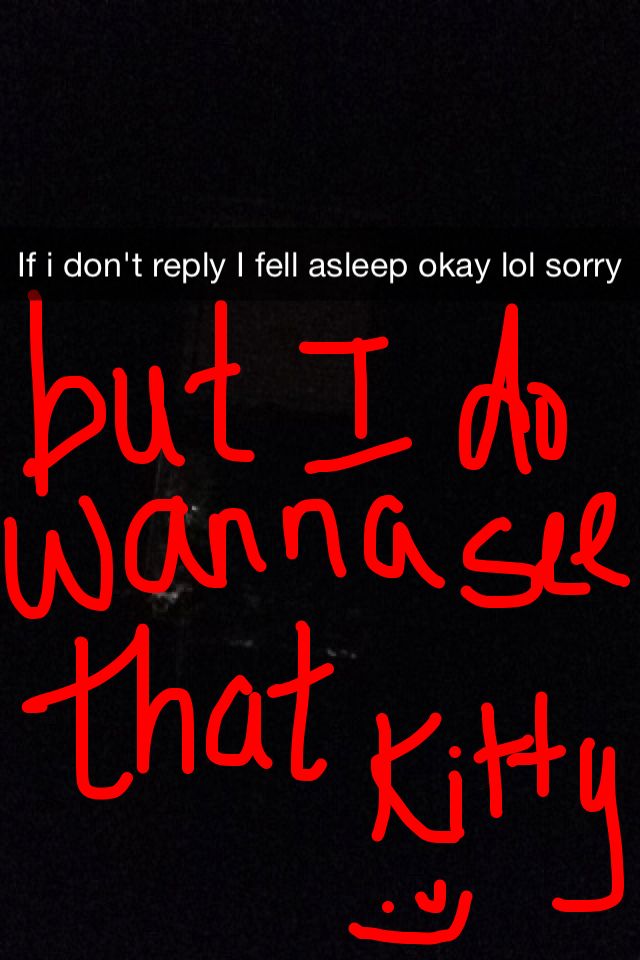 If i don't reply I fell asleep okay lol sorry
but I do
wanna see
that
Kitty